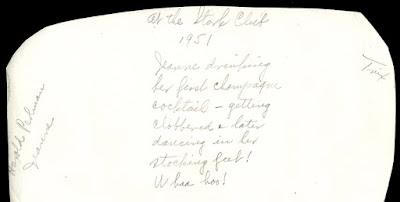 At the Stork Club
1951
Jeanne drinking
her first champagne
cocktail - getting
clobbered & later
dancing in her
stocking feet!
Whaa hoo!
Trix
Harold
Jeanne